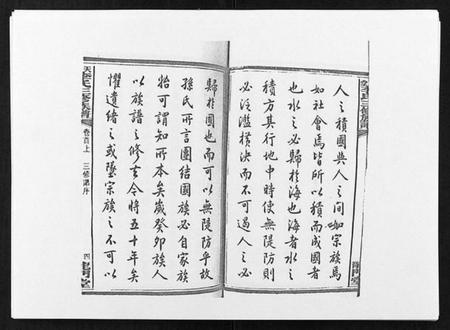 人之積國與人之間姻宗族焉
如社會焉皆所以積而成國者
也水之必歸於海也海者水之
積方其行地中時使無隄防則
必泛濫橫決而不可遏人之必
歸於國也而可以無隄防乎故
孫氏所言團結國族必自家族
始可謂知所本矣歲癸卯族人
以族譜之修去今將五十年矣
懼遺緒之或墜宗族之不可以
三修族譜
卷首上
三修譜序
四